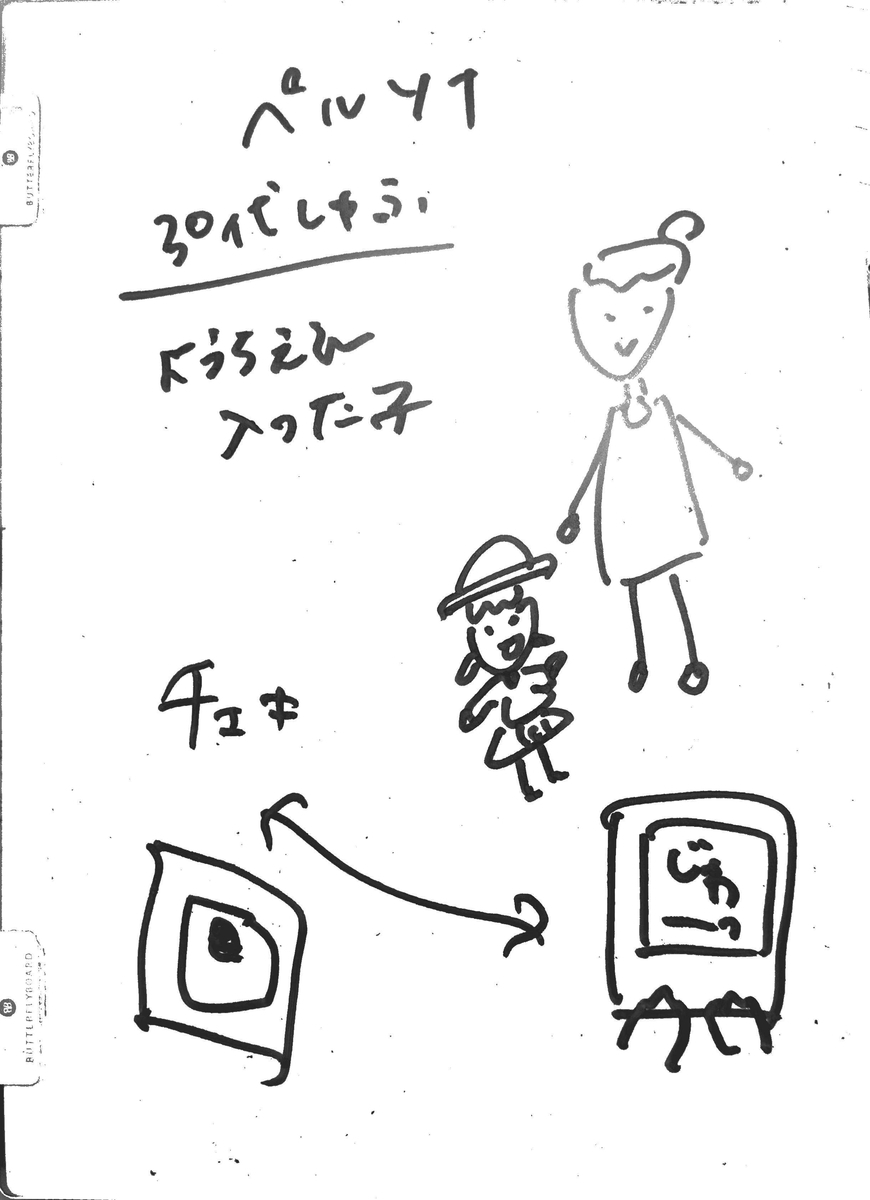 ペルソナ
30代しゅふ
ようちえん
入った子
チェキ
BUTTERFLYBOARD
BUTTERFLYBOARD